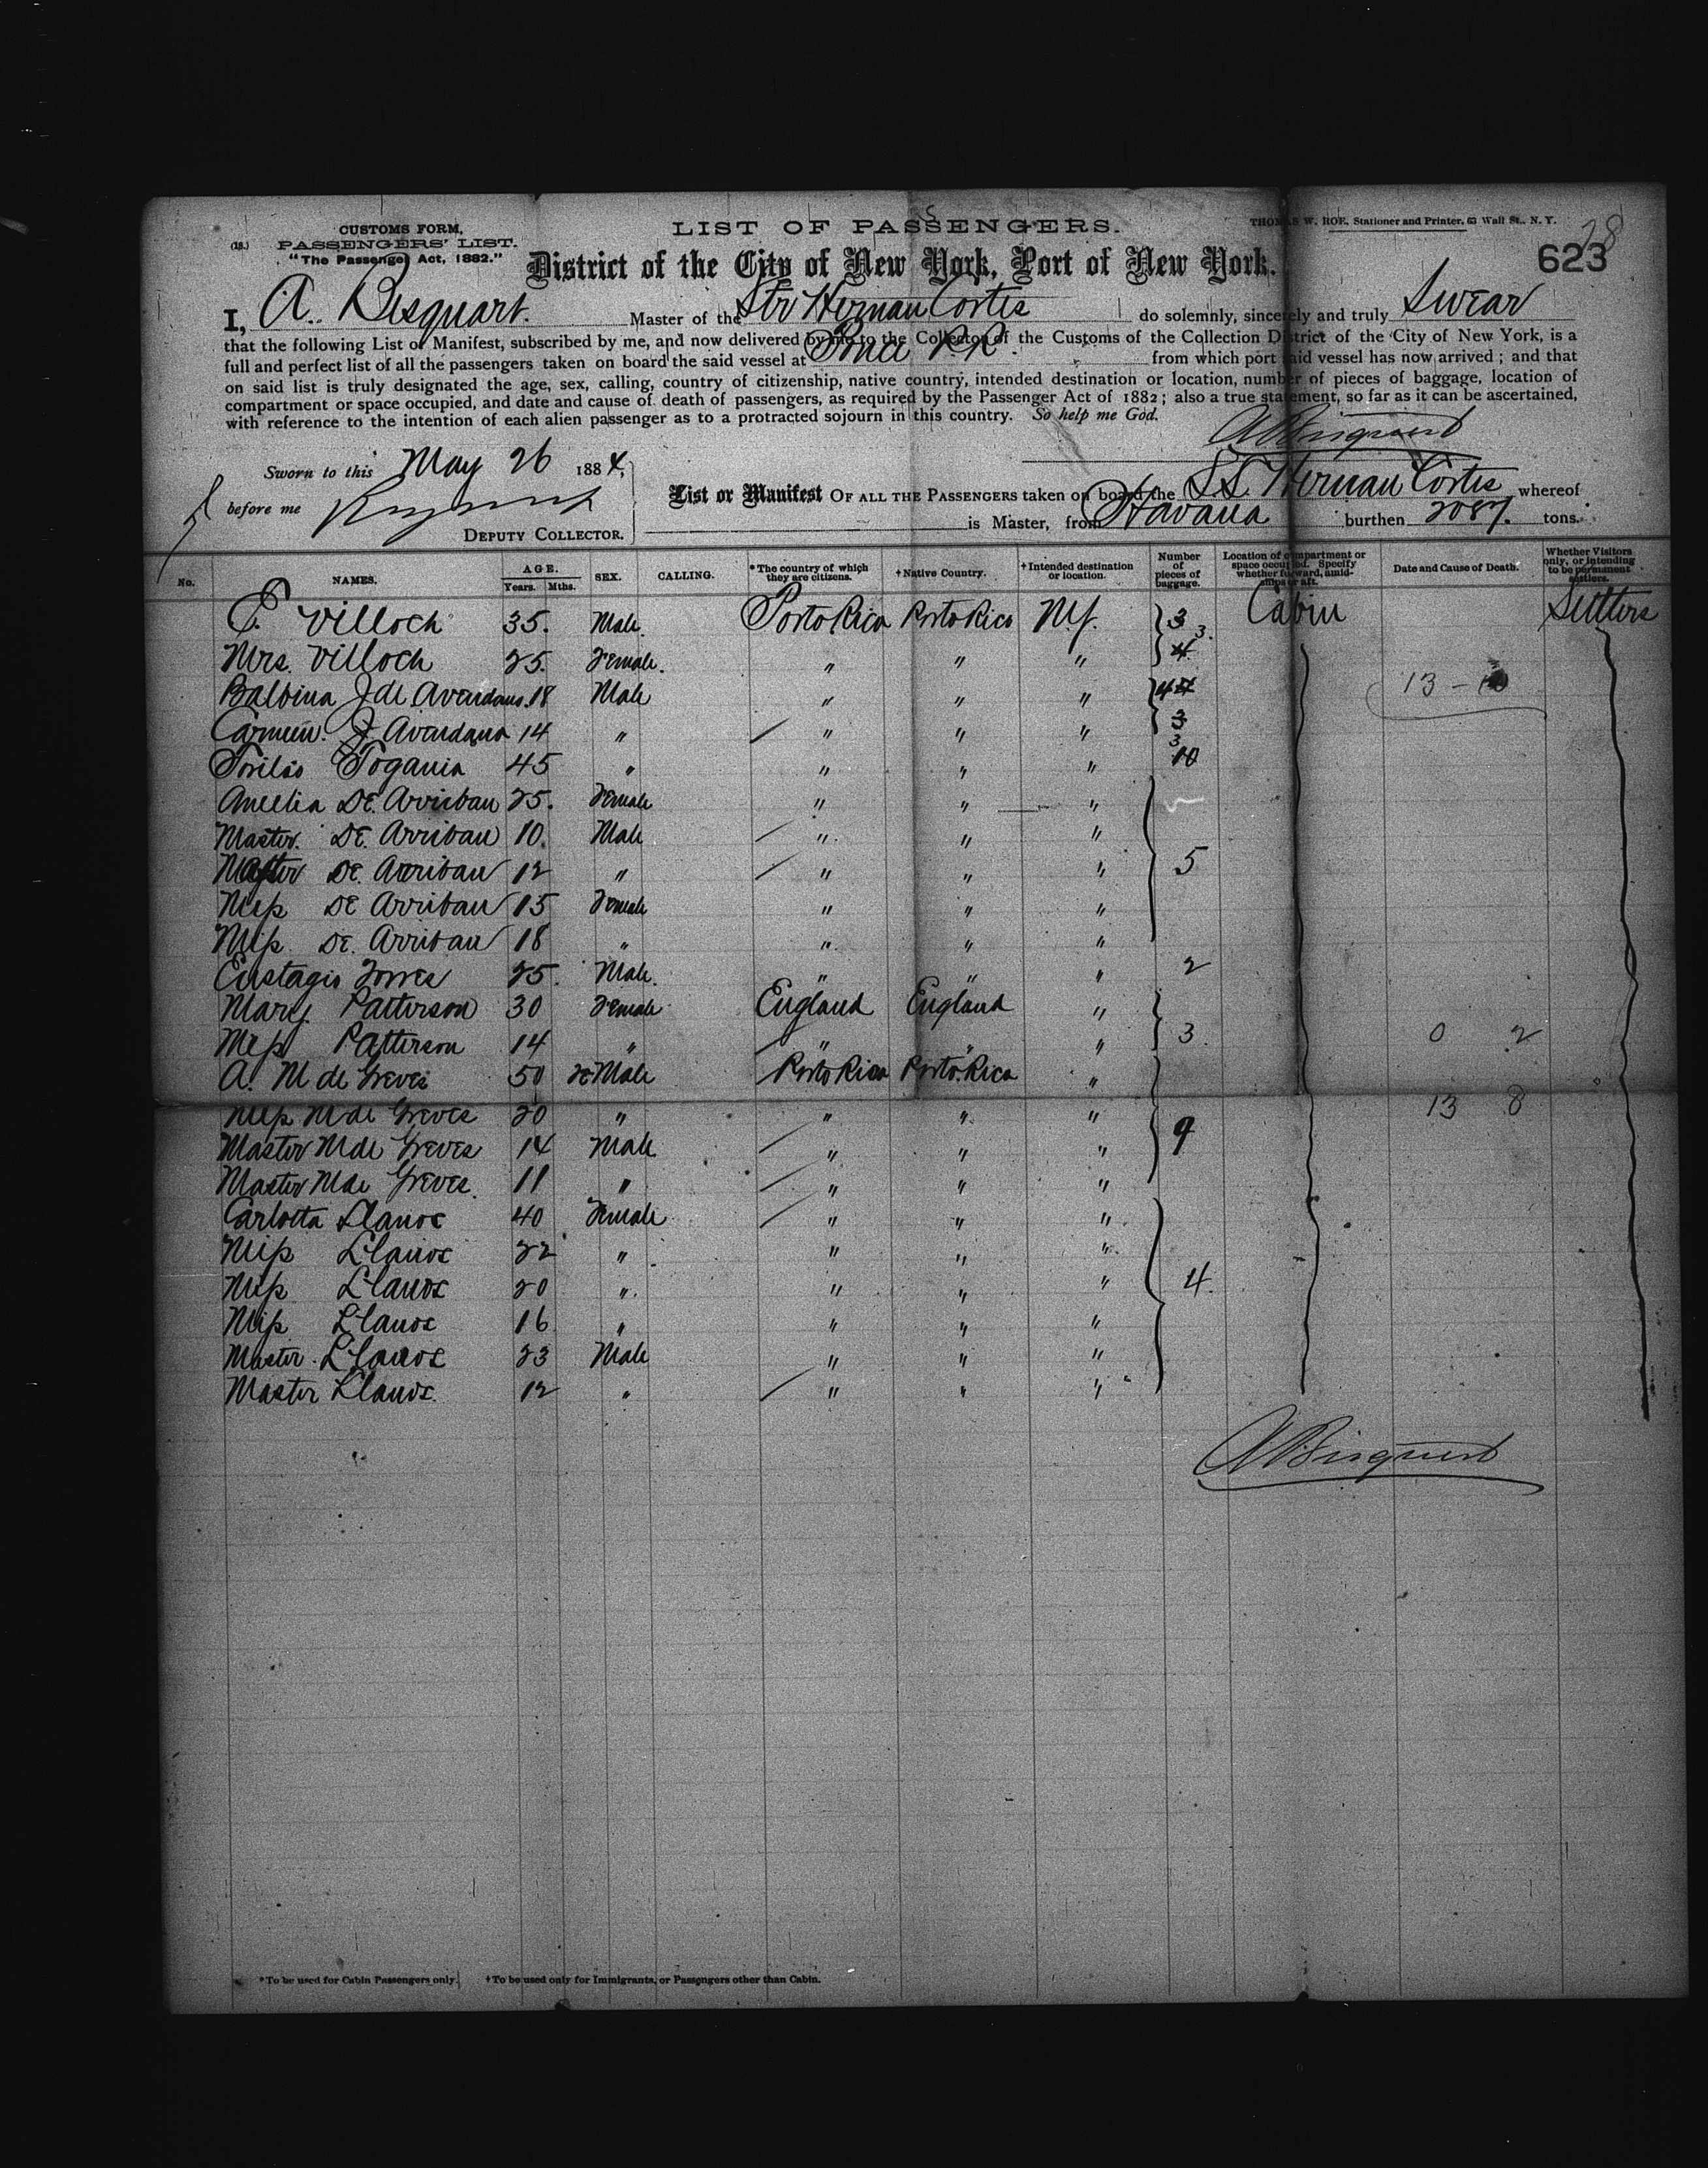 CUSTOMS FORM,
LIST OF PASSENGERS.
THOMAS W. ROE, Stationer and Printer, 63 Wall St., N. Y.
28
(18.) PASSENGERS' LIST.
"The Passenger Act, 1882."
District of the City of New York, Port of New York.
623
I, A. Bisquart. Master of the Str Hernan Cortes do solemnly, sincerely and truly Swear
that the following List or Manifest, subscribed by me, and now delivered by me to the Collector of the Customs of the Collection District of the City of New York, is a
full and perfect list of all the passengers taken on board the said vessel at Ponce P.R. from which port said vessel has now arrived; and that
on said list is truly designated the age, sex, calling, country of citizenship, native country, intended destination or location, number of pieces of baggage, location of
compartment or space occupied, and date and cause of death of passengers, as required by the Passenger Act of 1882; also a true statement, so far as it can be ascertained,
with reference to the intention of each alien passenger as to a protracted sojourn in this country. So help me God.
ABisquert
Sworn to this May 26 1884,
before me
DEPUTY COLLECTOR.
List or Manifest OF ALL THE PASSENGERS taken on board the S.S. Hernan Cortes whereof
is Master, from Havana burthen 2087. tons.
No. NAMES. AGE. Years. Mths. SEX. CALLING. *The country of which they are citizens. †Native Country. †Intended destination or location. Number of pieces of baggage. Location of compartment or space occupied. Specify whether forward, amidships or aft. Date and Cause of Death. Whether Visitors only, or intending to be permanent settlers.
P. Villoch 35. Male. Porto Rico Porto Rico N.Y. 3 3. Cabin Settlers
Mrs. Villoch 25. Female. " " " 4
Balbina J de Avendano. 18 Male " " " 4 4 13 -
Carmen. J. Avendano 14 " " " " 3
45 " " " " 3 10
Amelia De. Arriban 25. Female " " "
Master. De. Arriban 10. Male " " "
Master De. Arriban 12 " " " " 5
Miss De Arriban 15 Female " " "
Miss. De. Arriban 18 " " " "
Eustagio Torres 25. Male. " " " 2
Mary. Patterson 30 Female England England "
Miss Patterson 14 " " " " 3. 0 2
A. M de Greves 50 FeMale Porto Rico Porto Rico "
Miss M de Greves 20 " " " " 13 8
Master M de Greves 14 Male " " " 9
Master M de Greves. 11 " " " "
Carlotta Llanos 40 Female " " "
Miss Llanos 22 " " " "
Miss Llanos 20 " " " " 4.
Miss Llanos 16 " " " "
Master. Llanos 23 Male " " "
Master Llanos. 12 " " " "
ABisquert
*To be used for Cabin Passengers only. †To be used only for Immigrants, or Passengers other than Cabin.